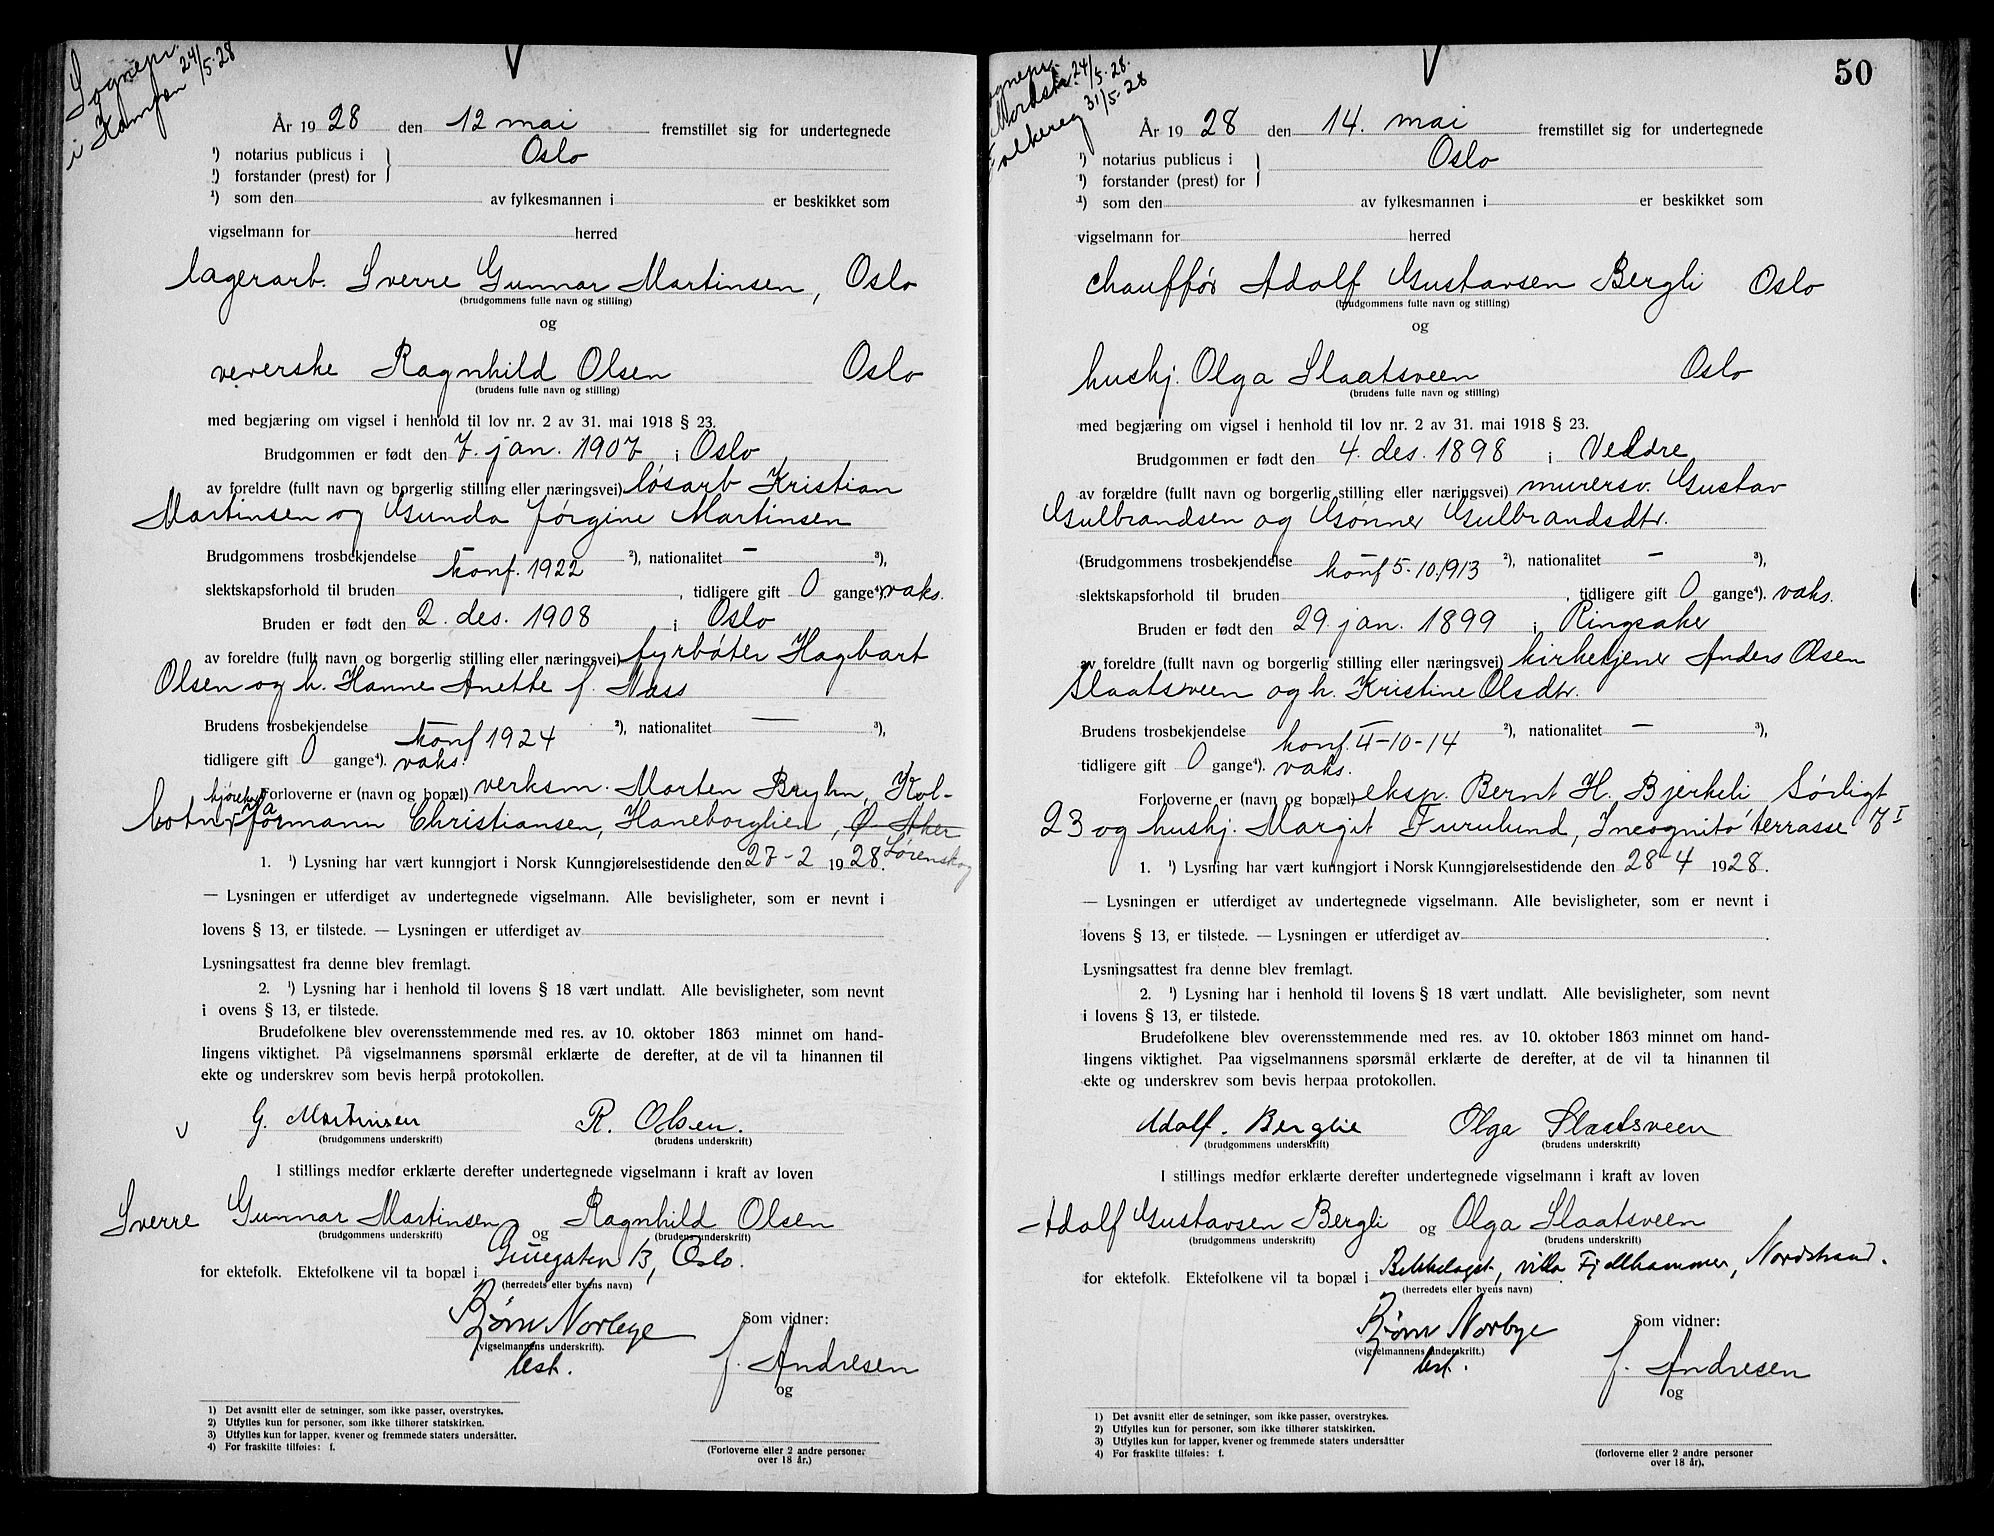 Sognepr.
i Kampen 24/5-28
År 1928 den 12 mai fremstillet sig for undertegnede
¹) notarius publicus i Oslo
¹) forstander (prest) for
¹) som den av fylkesmannen i er beskikket som
vigselmann for herred
lagerarb. Sverre Gunnar Martinsen, Oslo
(brudgommens fulle navn og stilling)
og
veverske Ragnhild Olsen Oslo
(brudens fulle navn og stilling)
med begjæring om vigsel i henhold til lov nr. 2 av 31. mai 1918 § 23.
Brudgommen er født den 7. jan. 1907 i Oslo
av foreldre (fullt navn og borgerlig stilling eller næringsvei) løsarb Kristian
Martinsen og Gunda Jørgine Martinsen
Brudgommens trosbekjendelse — ²), nationalitet — ³),
konf. 1922
slektskapsforhold til bruden , tidligere gift 0 gange⁴). vaks.
Bruden er født den 2. des. 1908 i Oslo
av foreldre (fullt navn og borgerlig stilling eller næringsvei) fyrbøter Hagbart
Olsen og h. Hanne Anette f. Næss
Brudens trosbekjendelse — ²), nationalitet — ³),
konf 1924
tidligere gift 0 gange⁴). vaks.
Forloverne er (navn og bopæl) verksm. Morten Bryhn, Kol-
botn formann Christiansen, Haneborglien, Ø. Aker
Lørenskog
1. ¹) Lysning har vært kunngjort i Norsk Kunngjørelsestidende den 27-2 1928.
— Lysningen er utferdiget av undertegnede vigselmann. Alle bevisligheter, som er nevnt i
lovens § 13, er tilstede. — Lysningen er utferdiget av
Lysningsattest fra denne blev fremlagt.
2. ¹) Lysning har i henhold til lovens § 18 vært undlatt. Alle bevisligheter, som nevnt
i ovens § 13, er tilstede.
Brudefolkene blev overensstemmende med res. av 10. oktober 1863 minnet om hand-
lingens viktighet. På vigselmannens spørsmål erklærte de derefter, at de vil ta hinannen til
ekte og underskrev som bevis herpå protokollen.
G. Martinsen R. Olsen.
(brudgommens underskrift) (brudens underskrift)
I stillings medfør erklærte derefter undertegnede vigselmann i kraft av loven
Sverre Gunnar Martinsen og Ragnhild Olsen
(brudgommens underskrift) (brudens underskrift)
for ektefolk. Ektefolkene vil ta bopæl i 13, Oslo.
(herredets eller byens navn)
Bjørn Norbye Som vidner:
(vigselmannens underskrift).
best. J. Andresen
og
1) Det avsnitt eller de setninger, som ikke passer, overstrykes.
2) Utfylles kun for personer, som ikke tilhører statskirken.
3) Utfylles kun for lapper, kvener og fremmede staters undersåtter.
4) For fraskilte tilføies: f.
(Forloverne eller 2 andre personer
over 18 år.)
50
ognepr.
Nordstr. 24/5-28.
Folkereg 31/5-28
År 1928 den 14. mai fremstillet sig for undertegnede
¹) notarius publicus i Oslo
¹) forstander (prest) for
¹) som den av fylkesmannen i er beskikket som
vigselmann for herred
chauffør Adolf Gustavsen Bergli Oslo
(brudgommens fulle navn og stilling)
og
hushj. Olga Slaatsveen Oslo
(brudens fulle navn og stilling)
med begjæring om vigsel i henhold til lov nr. 2 av 31. mai 1918 § 23.
Brudgommen er født den 4. des. 1898 i Veldre
av forældre (fullt navn og borgerlig stilling eller næringsvei) murersv. Gustav
Gulbrandsen og Gønner Gulbrandsdtr.
(Brudgommens trosbekjendelse — ²), nationalitet — ³),
konf 5-10.1913
slektskapsforhold til bruden , tidligere gift 0 gange⁴). vaks.
Bruden er født den 29. jan. 1899 i Ringsaker
av foreldre (fullt navn og borgerlig stilling eller næringsvei) kirketjener Anders Olsen
Slaatsveen og h. Kristine Olsdtr.
Brudens trosbekjendelse — ²), nationalitet — ³),
konf. 4-10-14
tidligere gift 0 gange⁴). vaks.
Forloverne er (navn og bopæl) eksp. Bernt H. Bjerkeli Sørligt
23 og hushj. Margit Furulund, Incognito terrasse 7 I
1. ¹) Lysning har vært kunngjort i Norsk Kunngjørelsestidende den 28-4 1928.
— Lysningen er utferdiget av undertegnede vigselmann. Alle bevisligheter, som er nevnt i
lovens § 13, er tilstede. — Lysningen er utferdiget av .
Lysningsattest fra denne blev fremlagt.
2. ¹) Lysning har i henhold til lovens § 18 vært undlatt. Alle bevisligheter, som nevnt
i lovens § 13, er tilstede.
Brudefolkene blev overensstemmende med res. av 10. oktober 1863 minnet om hand-
lingens viktighet. Paa vigselmannens spørsmål erklærte de derefter, at de vil ta hinannen til
ekte og underskrev som bevis herpaa protokollen.
Adolf. Berglie Olga Slaatsveen
(brudgommens underskrift) (brudens underskrift)
I stillings medfør erklærte derefter undertegnede vigselmann i kraft av loven
Adolf Gustavsen Bergli og Olga Slaatsveen
(brudgommens underskrift) (brudens underskrift)
for ektefolk. Ektefolkene vil ta bopæl i Bekkelaget, villa Fjellhammer, Nordstrand.
(herredets eller byens navn)
Bjørn Norbye Som vidner:
(vigselmannens underskrift.)
best. J. Andresen
og
1) Det avsnitt eller de setninger, som ikke passer, overstrykes.
2) Utfylles kun for personer, som ikke tilhører statskirken.
3) Utfylles kun for lapper, kvener og fremmede staters undersåtter
4) For fraskilte tilføies: f.
(forloverne eller 2 andre personer
over 18 år).